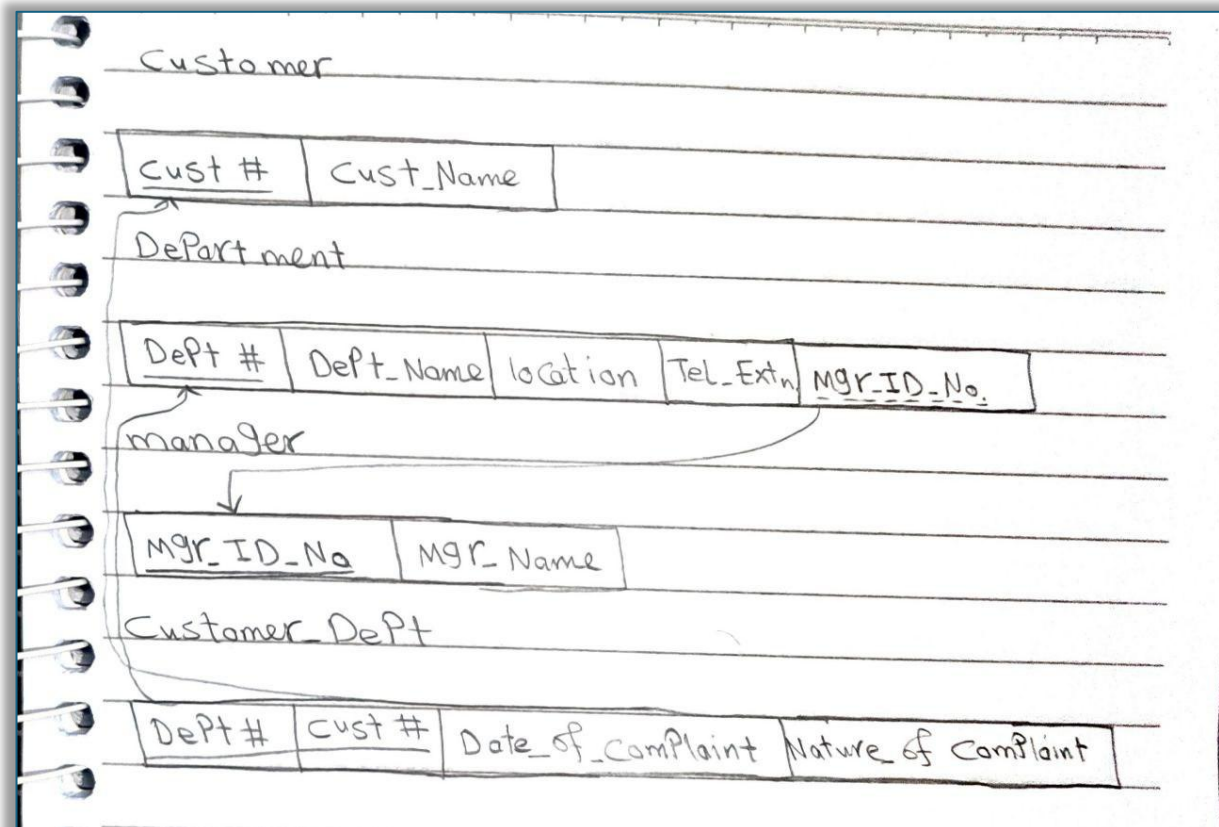 Customer
Cust # Cust_Name
DePartment
DePt # DePt_Name location Tel_Extn Mgr_ID_No.
manager
Mgr_ID_No Mgr_Name
Customer_DePt
DePt # Cust # Date_of_ComPlaint Nature_of ComPlaint